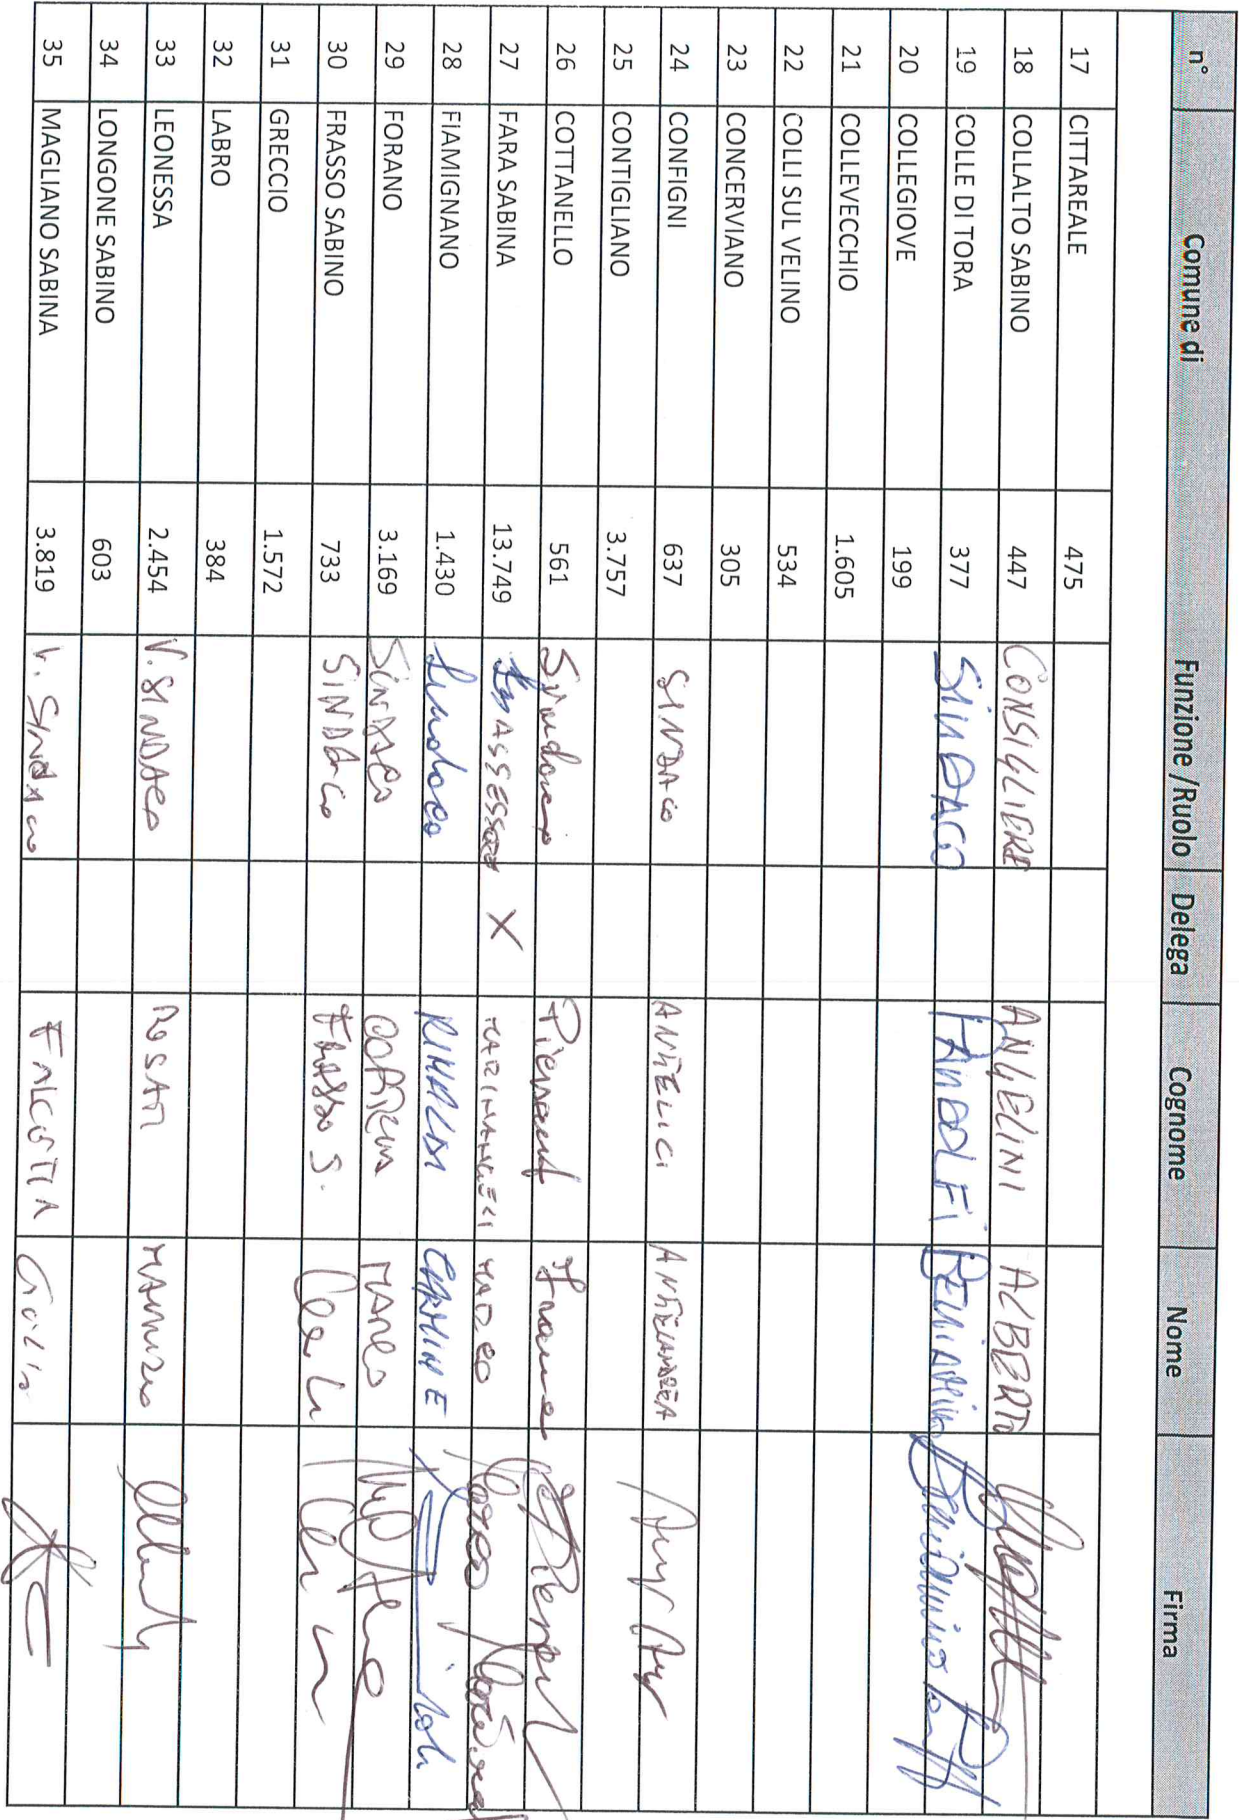 n° Comune di Funzione /Ruolo Delega Cognome Nome Firma
17 CITTAREALE 475
18 COLLALTO SABINO 447 CONSIGLIERE ANGELINI ALBERTO
19 COLLE DI TORA 377 SINDACO PANDOLFI BENIAMINO Beniamino
20 COLLEGIOVE 199
21 COLLEVECCHIO 1.605
22 COLLI SUL VELINO 534
23 CONCERVIANO 305
24 CONFIGNI 637 SINDACO ANGELICI
25 CONTIGLIANO 3.757
26 COTTANELLO 561 Sindaco Franco
27 FARA SABINA 13.749 ASSESSORE X MARINANGELI MARCO Marco
28 FIAMIGNANO 1.430 Sindaco RINALDI CARMINE
29 FORANO 3.169 SINDACO CORTELLA MARCO
30 FRASSO SABINO 733 SINDACO Frasso S.
31 GRECCIO 1.572
32 LABRO 384
33 LEONESSA 2.454 V. SINDACO ROSATI MAURIZIO
34 LONGONE SABINO 603
35 MAGLIANO SABINA 3.819 V. SINDACO FALCETTA Giulio